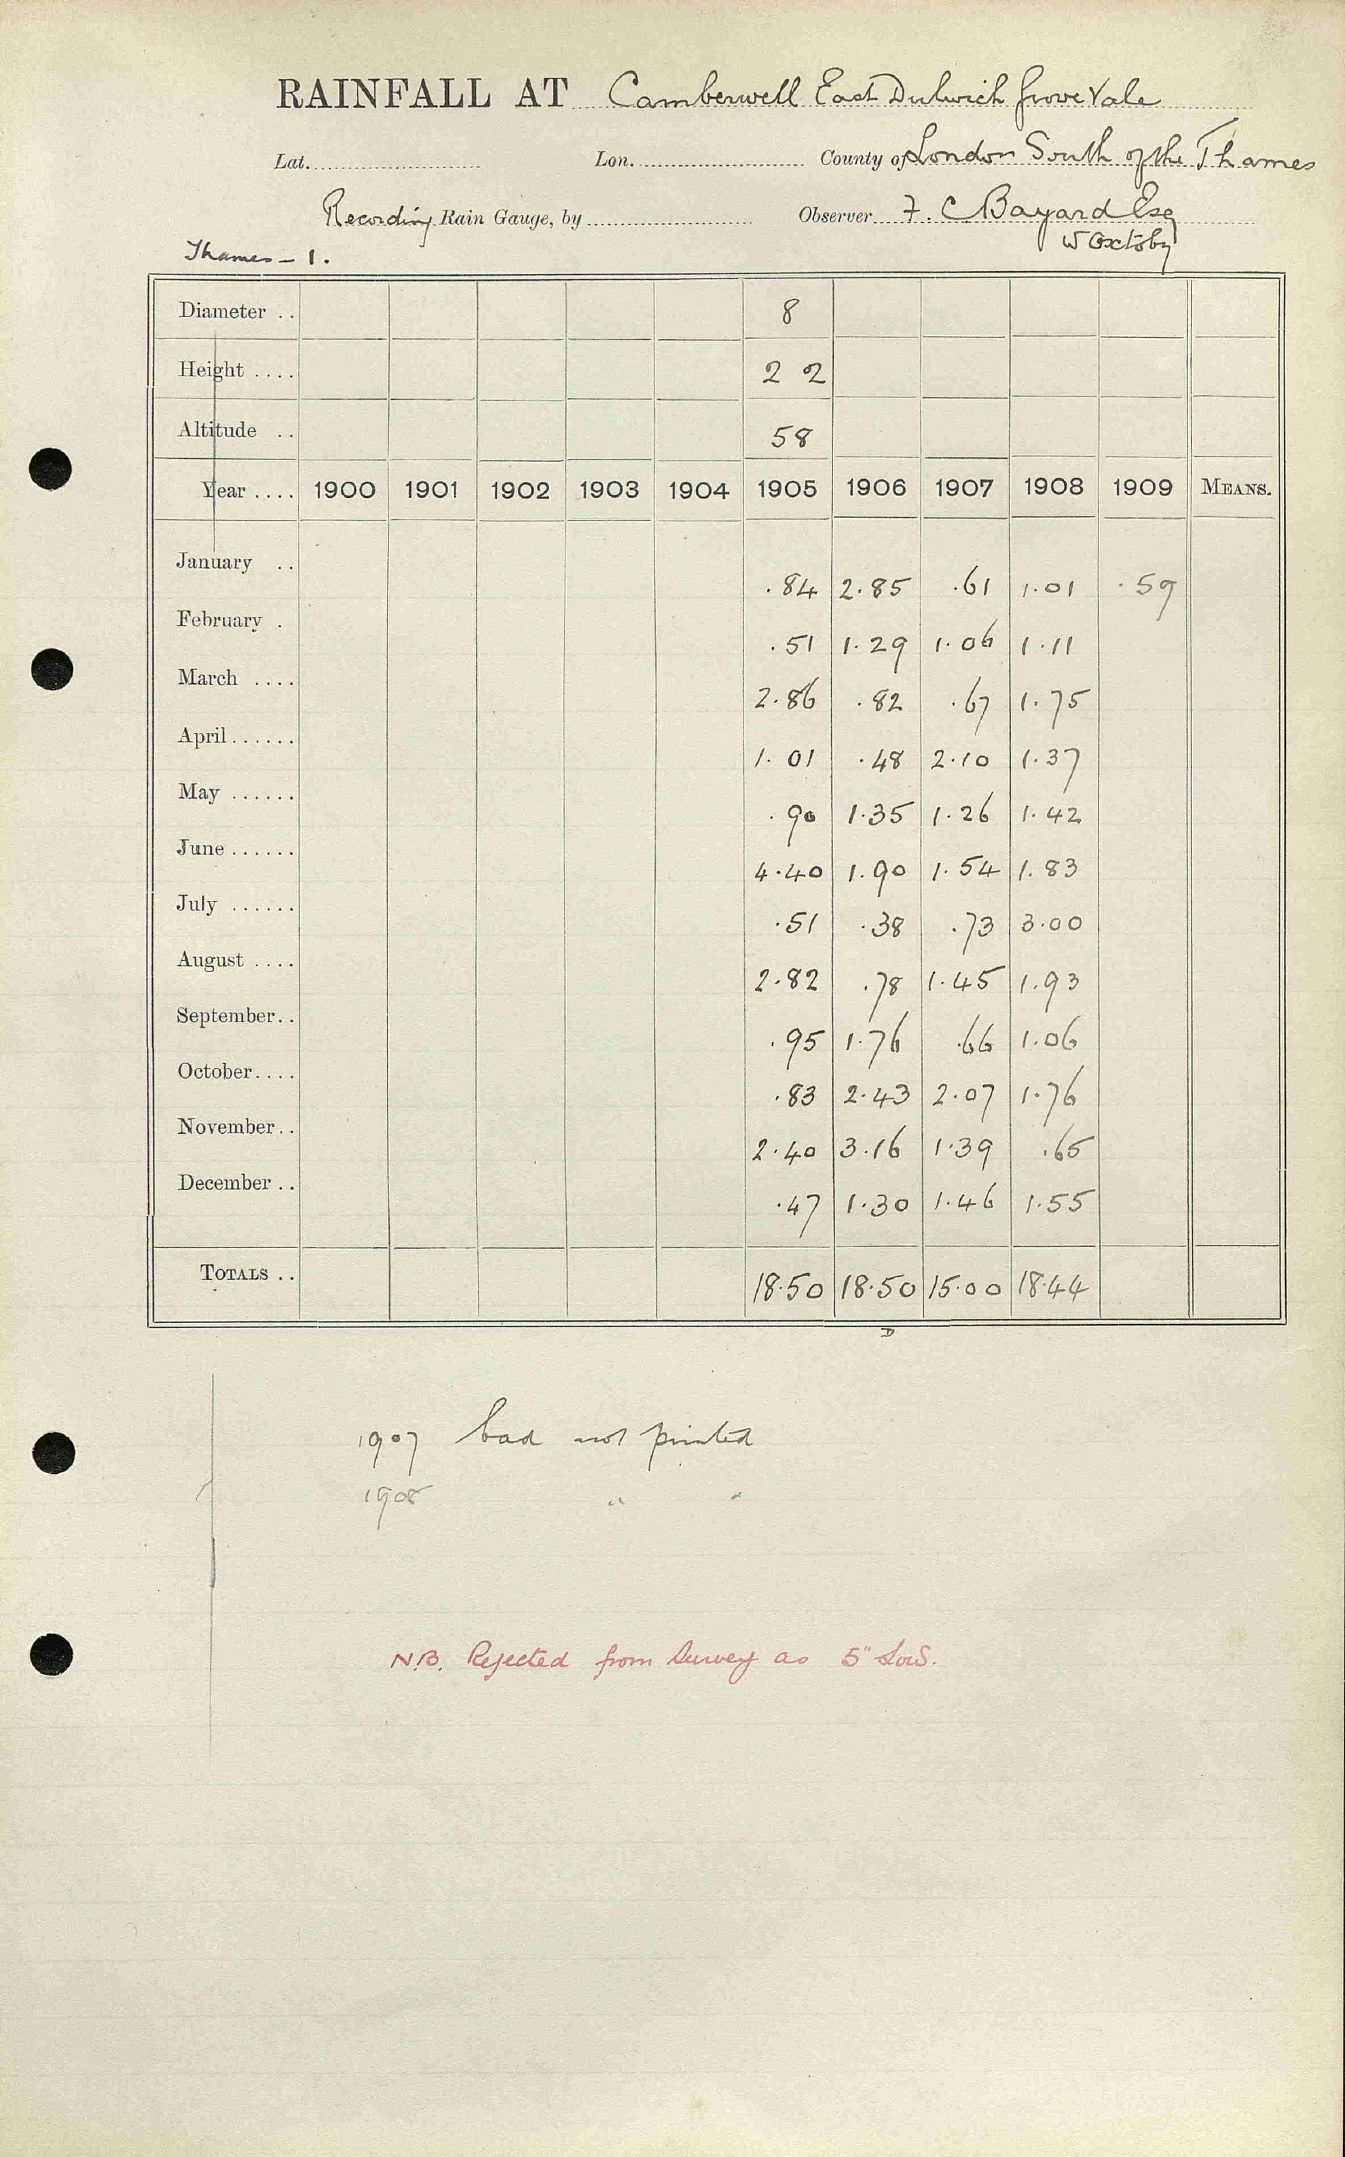 RAINFALL AT Camberwell East Dulwich Grove Vale
Lat. Lon. County of London South of the Thames
Recording Rain Gauge, by Observer F. C Bayard Esq
W Oxtoby
Thames - 1.
Diameter .. 8
Height .... 2 2
Altitude .. 58
Year .... 1900 1901 1902 1903 1904 1905 1906 1907 1908 1909 MEANS.
January .. .84 2.85 .61 1.01 .59
February . .51 1.29 1.06 1.11
March .... 2.86 .82 .67 1.75
April ...... 1.01 .48 2.10 1.37
May ...... .90 1.35 1.26 1.42
June ...... 4.40 1.90 1.54 1.83
July ...... .51 .38 .73 3.00
August .... 2.82 .78 1.45 1.93
September.. .95 1.76 .66 1.06
October.... .83 2.43 2.07 1.76
November.. 2.40 3.16 1.39 .65
December .. .47 1.30 1.46 1.55
TOTALS .. 18.50 18.50 15.00 18.44
D
1907 bad not printed
1908 " "
N.B. Rejected from Survey as 5" low.